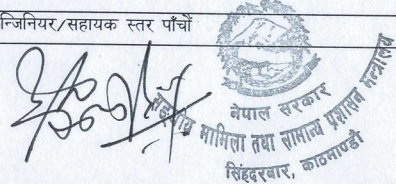 न्जिनियर/सहायक स्तर पाँचौं
नेपाल सरकार
मामिला तथा सामान्य प्रशासन मन्त्रालय
सिंहदरबार, काठमाण्डौ